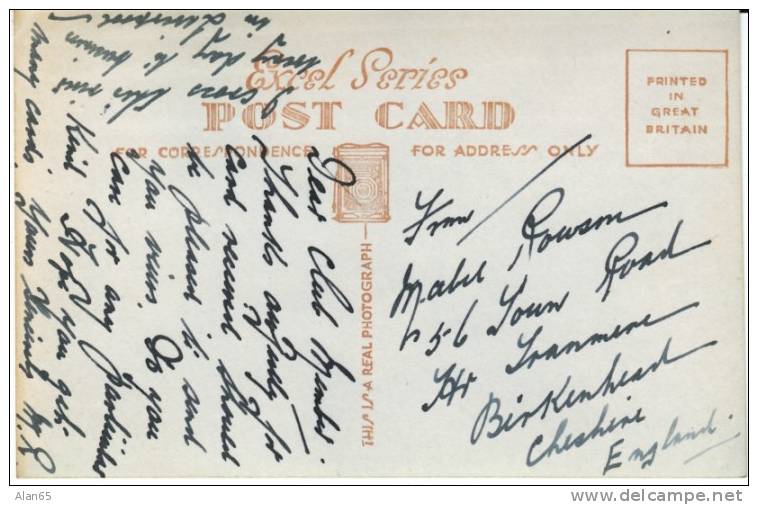 Excel Series
POST CARD
PRINTED
IN
GREAT
BRITAIN
FOR CORRESPONDENCE
FOR ADDRESS ONLY
THIS IS A REAL PHOTOGRAPH
Dear Club Member.
Thanks awfully for
Card received should
be please to send
you views. Do you
Care for any Particular
Kind. Hope you get
many cards. Yours Sincerely M.R
I cross this river
every day to business
in Liverpool
From
Mabel Rowson
56 Town Road
Hr Tranmere
Birkenhead
Cheshire
England.
Alan65
http://www.delcampe.net